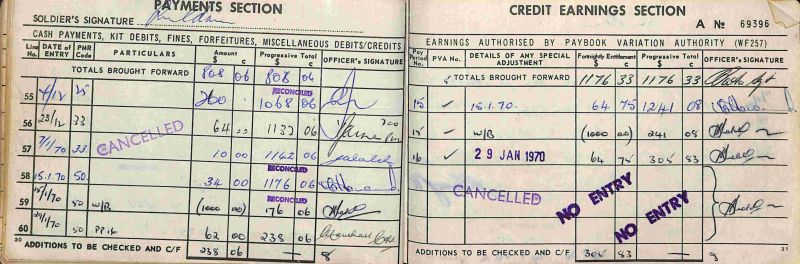 PAYMENTS SECTION
SOLDIER'S SIGNATURE
CASH PAYMENTS, KIT DEBITS, FINES, FORFEITURES, MISCELLANEOUS DEBITS/CREDITS
Line No. DATE of ENTRY PNR Code PARTICULARS Amount $ c Progressive Total $ c OFFICER'S SIGNATURE
TOTALS BROUGHT FORWARD 808 06 808 06
RECONCILED
55 9/12 25 260 1068 06
56 23/12 33 64 00 1132 06
CANCELLED
57 7/1/70 33 10 00 1142 06
RECONCILED
58 15.1.70 50 34 00 1176 06
RECONCILED
59 15/1/70 50 W/B (1000 00) 176 06
60 50 62 00 238 06
30 ADDITIONS TO BE CHECKED AND C/F 238 06
CREDIT EARNINGS SECTION
A No 69396
EARNINGS AUTHORISED BY PAYBOOK VARIATION AUTHORITY (WF257)
Pay Period No. PVA No. DETAILS OF ANY SPECIAL ADJUSTMENT Fortnightly Entitlement $ c Progressive Total $ c OFFICER'S SIGNATURE
TOTALS BROUGHT FORWARD 1176 33 1176 33
15 ✓ 15.1.70 64 75 1241 08
15 ✓ W/B (1000 00) 241 08
16 ✓ 29 JAN 1970 64 75 305 83
CANCELLED
NO ENTRY
NO ENTRY
ADDITIONS TO BE CHECKED AND C/F 305 83
31